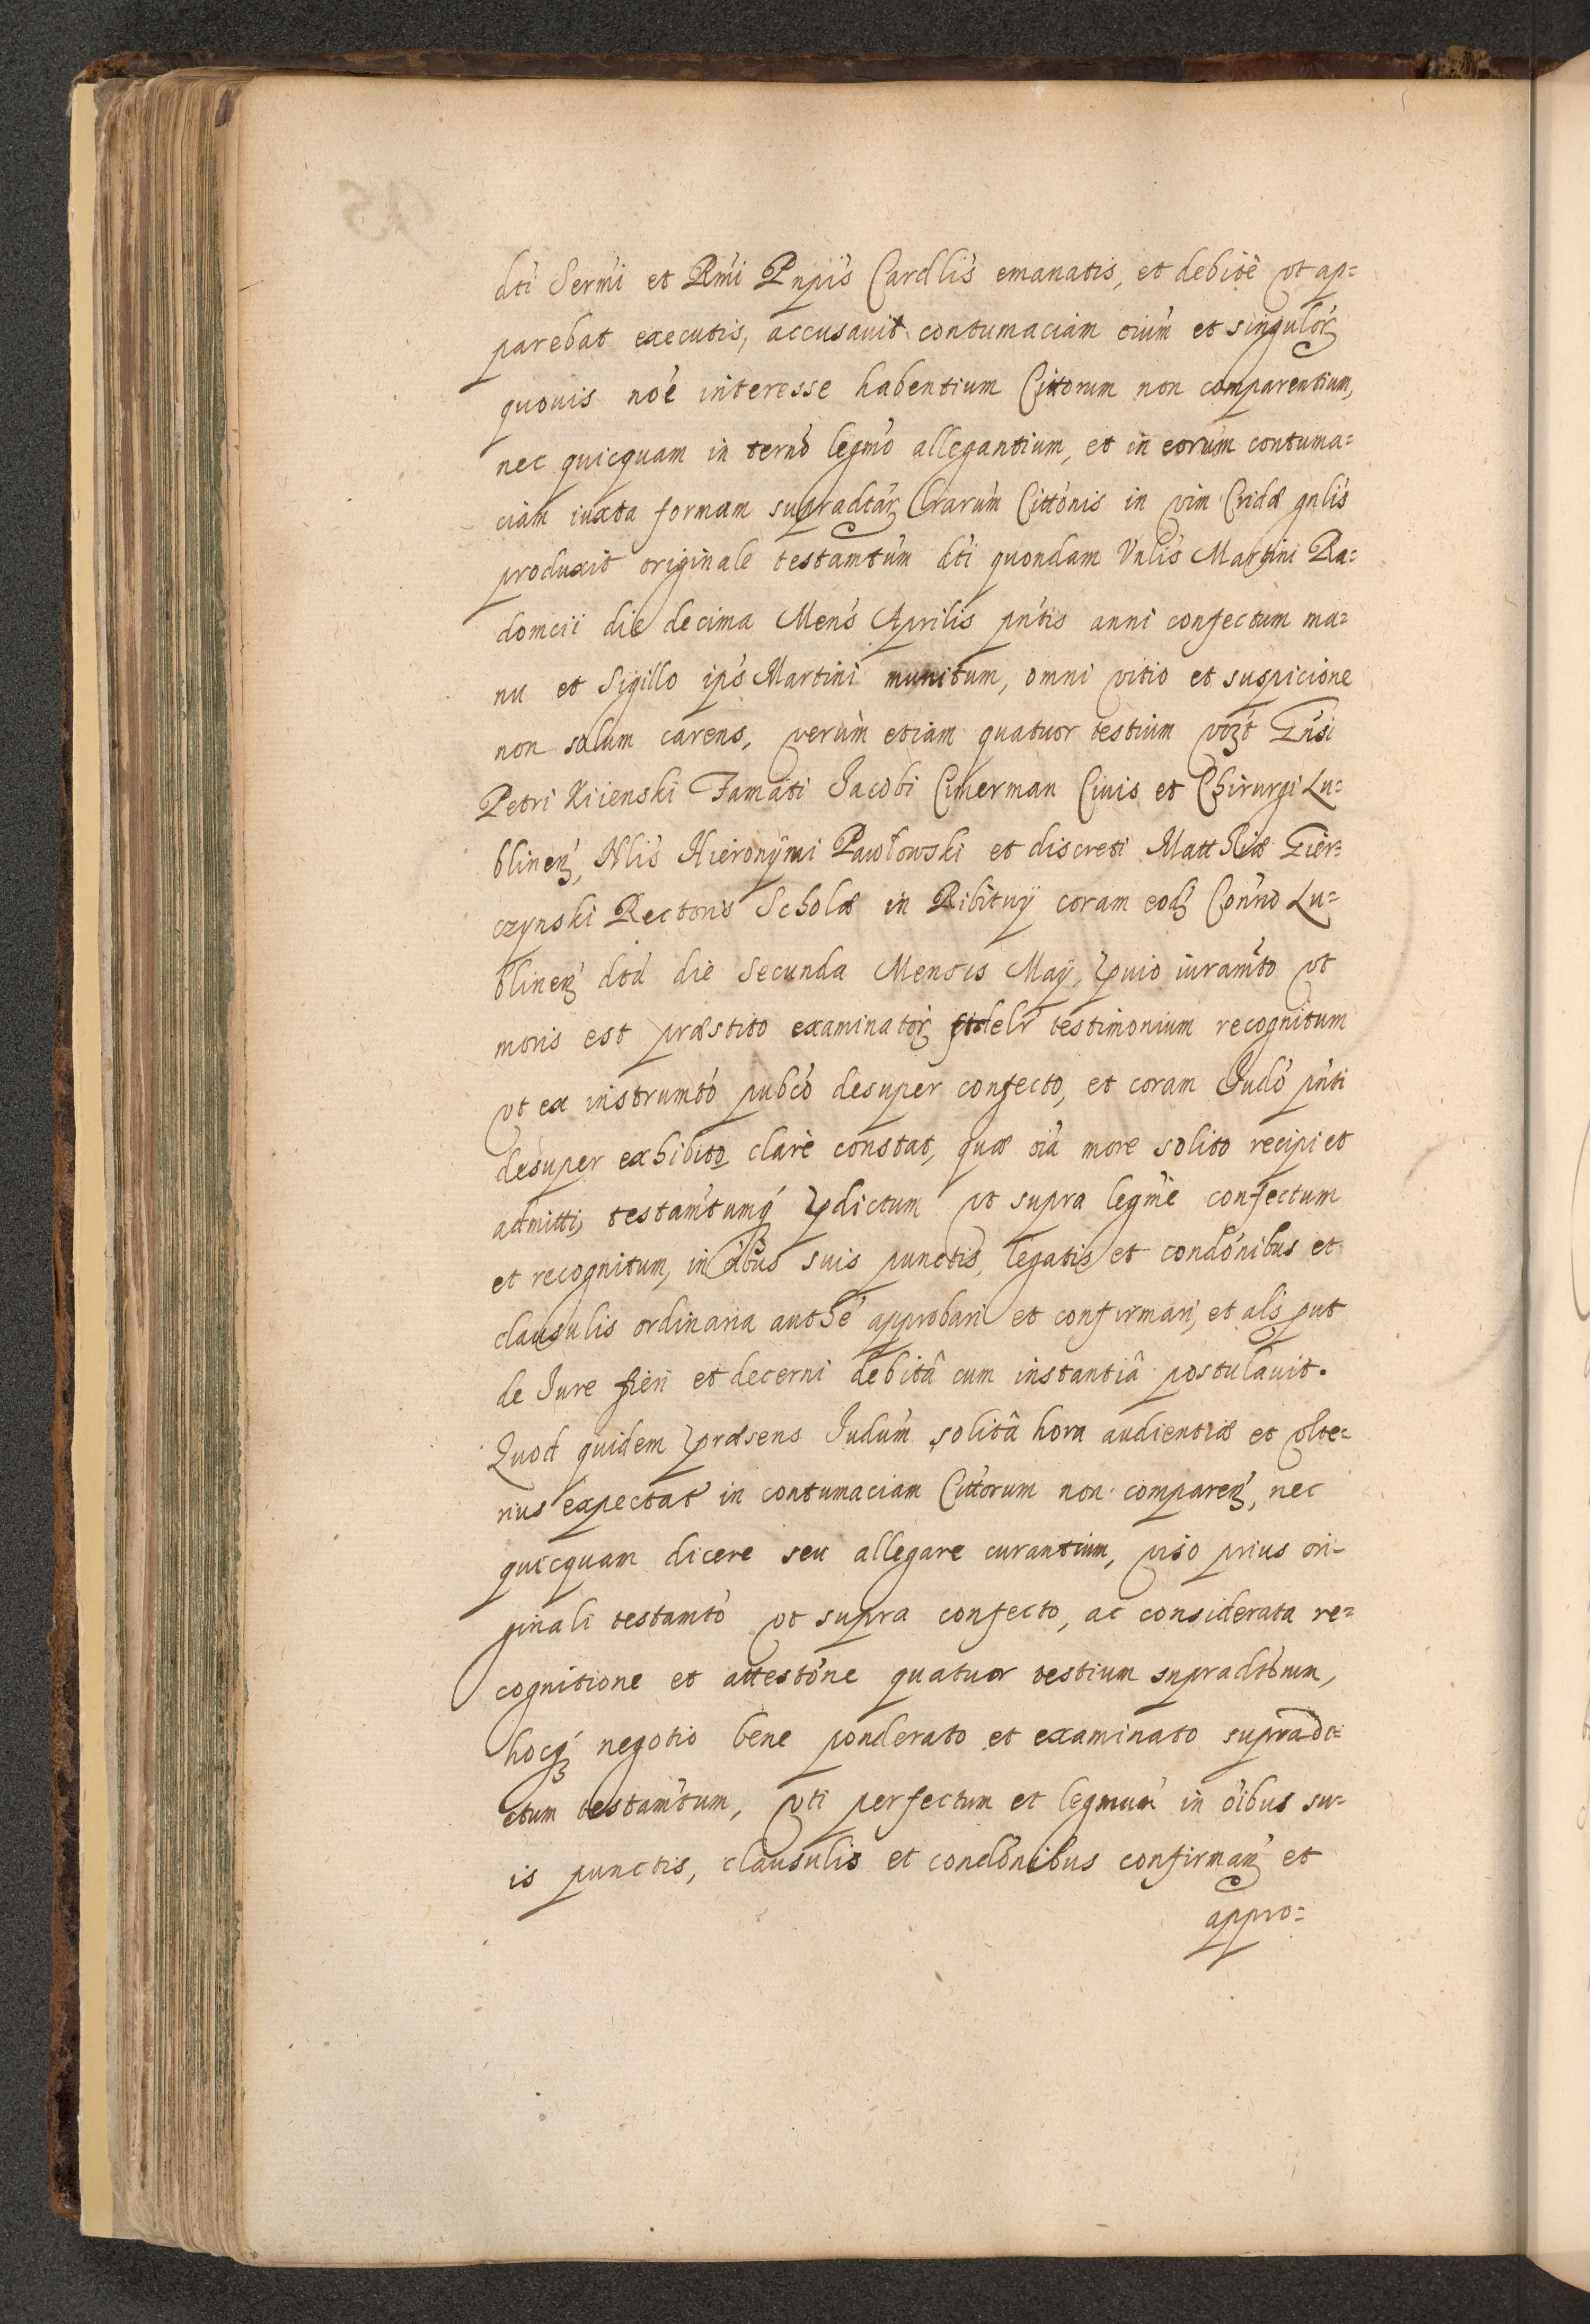 dti Sermi et Rmi Pnpis Cardlis emanatis, et debitè vt ap=
parebat executis, accusauit contumaciam oium et singulor
quouis noe interesse habentium Cittorum non comparentium,
nec quicquam in terno legmo allegantium, et in eorum contuma=
ciam iuxta formam supradtar Lrarum Cittonis in vim Cridæ gnlis
produxit originale testamtum dti quondam Vnlis Martini Ra=
domcii die decima Mens Aprilis pntis anni confectum ma=
nu et Sigillo ips Martini munitum, omni vitio et suspicione
non solum carens, verùm etiam quatuor testium vt Gnsi
Petri Kiienski Famati Jacobi Cimerman Ciuis et Chirurgi Lu=
blinen, Nlis Hieronÿmi Pawłowski et discreti Matthiæ Gier=
czynski Rectoris Scholæ in Ribituÿ coram eod Conno Lu=
blinen dtd die secunda Mensis Maÿ, puio iuramto vt
moris est præstito examinator fidelr testimonium recognitum
vt ex instrumto pubco desuper confecto, et coram Judo pnti
desuper exhibito clarè constat, quæ oia more solito recipi et
admitti, testamtumq pdictum vt supra legme confectum
et recognitum, in oibus suis punctis, legatis et condonibus et
clausulis ordinaria authe approbari et confirmari, et als put
de Jure fieri et decerni debitâ cum instantiâ postulauit.
Quod quidem præsens Judum solitâ hora audientiæ et vlte=
rius expectat in contumaciam Cittorum non comparen, nec
quicquam dicere seu allegare curantium, viso prius ori-
ginali testamto vt supra confecto, ac considerata re=
cognitione et attestone quatuor testium supradtorum,
hocq negotio bene ponderato et examinato suprado=
ctum testamtum, vti perfectum et legmum in oibus su=
is punctis, clausulis et condonibus confirman et
appro=